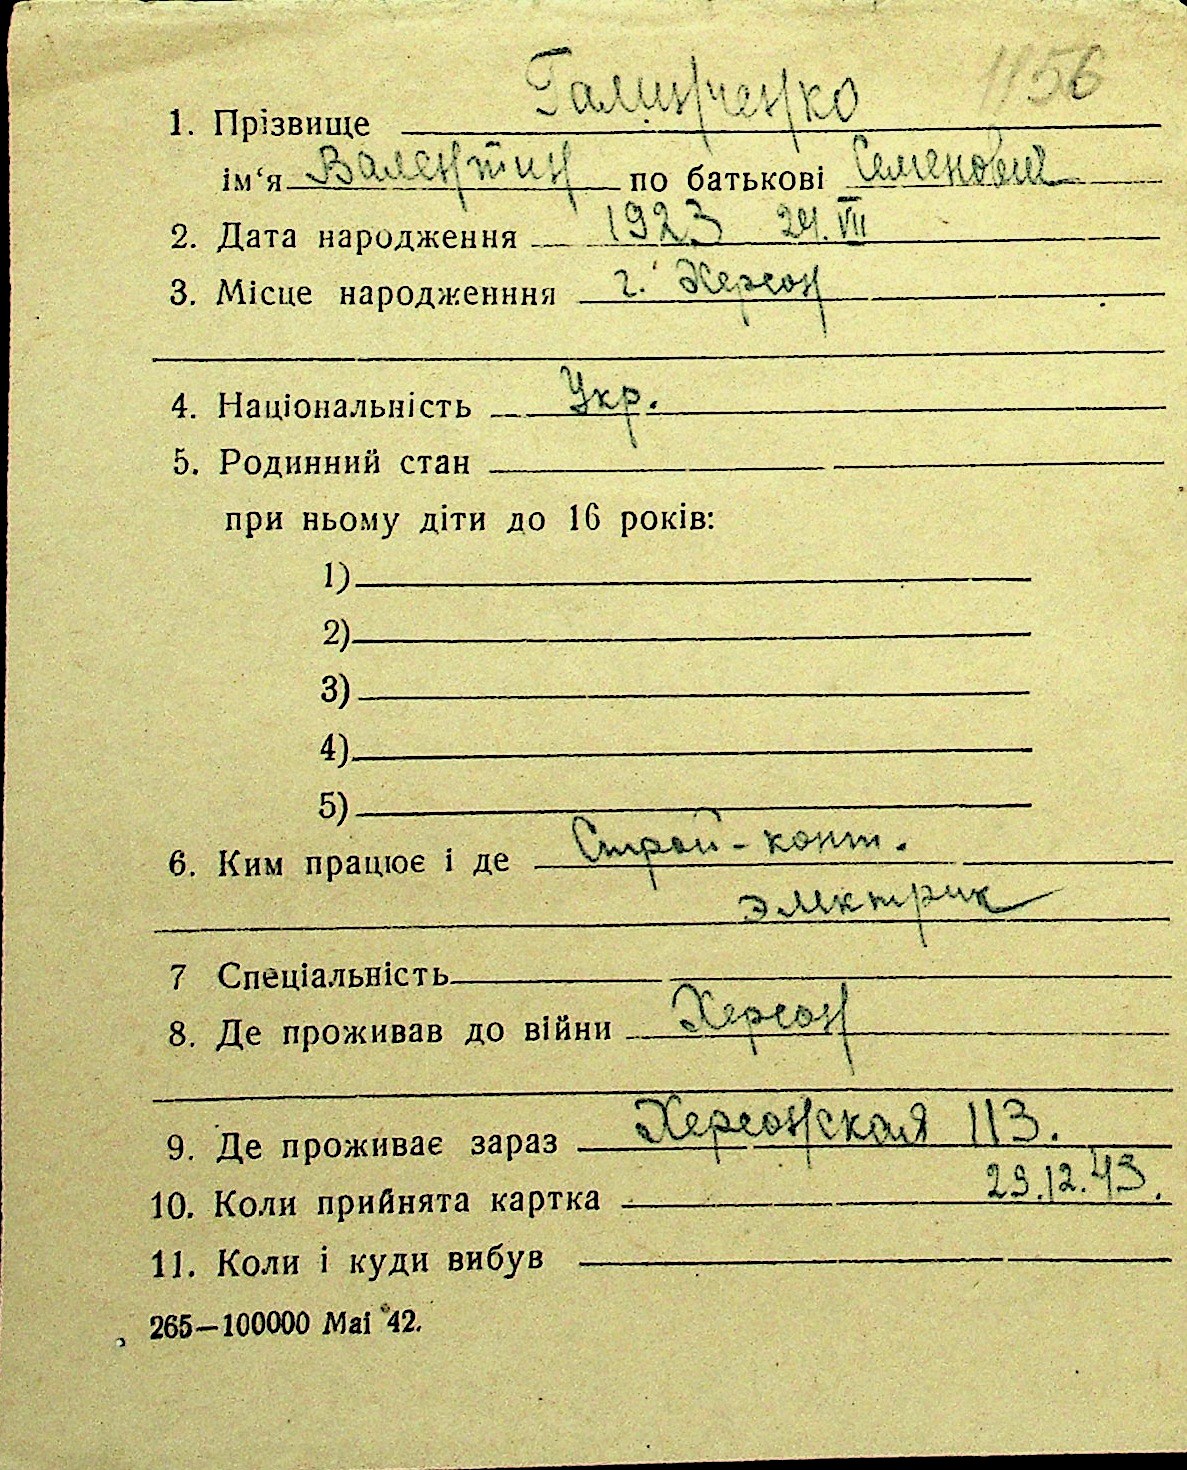 1156
1. Прізвище Галинченко
ім‘я Валентин по батькові Семенович
2. Дата народження 1923 24.VIII
3. Місце народженння г. Херсон
4. Національність Укр.
5. Родинний стан
при ньому діти до 16 років:
1)
2)
3)
4)
5)
6. Ким працює і де Строй-конт.
электрик
7 Спеціальність
8. Де проживав до війни Херсон
9. Де проживає зараз Херсонская 113.
10. Коли прийнята картка 29.12.43.
11. Коли і куди вибув
265—100000 Mai 42.